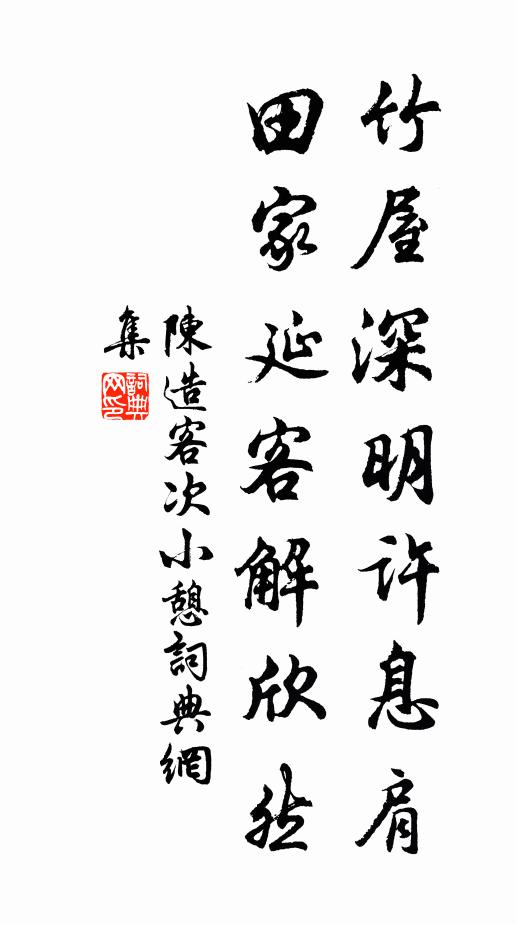 竹屋深明許息肩
田家延客解欣然
陳造客次小憩詞典網
集
詞典
网印